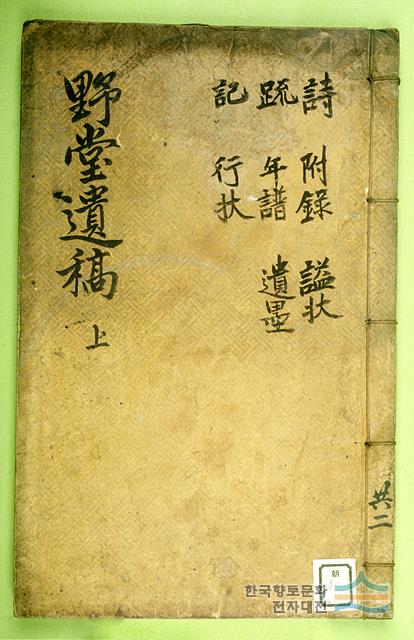 詩 附錄 謚狀
疏 年譜 遺墨
記 行狀
野堂遺稿 上
共二
朝
한국향토문화
전자대전